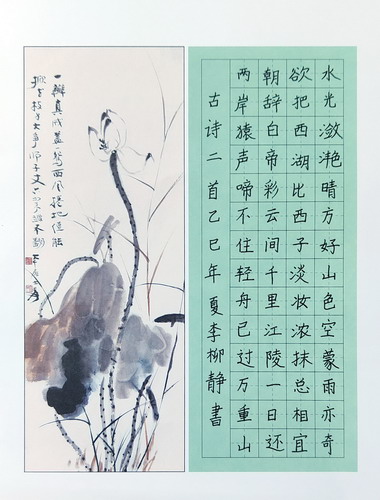 水光潋滟晴方好山色空蒙雨亦奇
欲把西湖比西子淡妆浓抹总相宜
朝辞白帝彩云间千里江陵一日还
两岸猿声啼不住轻舟已过万重山
古诗二首乙巳年夏李柳静書
一瓣真成盖一鸳西风捲地僅能
掀